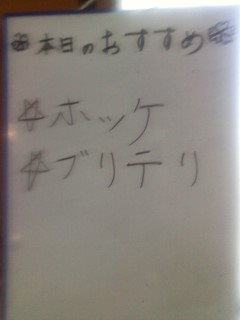 本日のおすすめ
☆ホッケ
☆ブリテリ